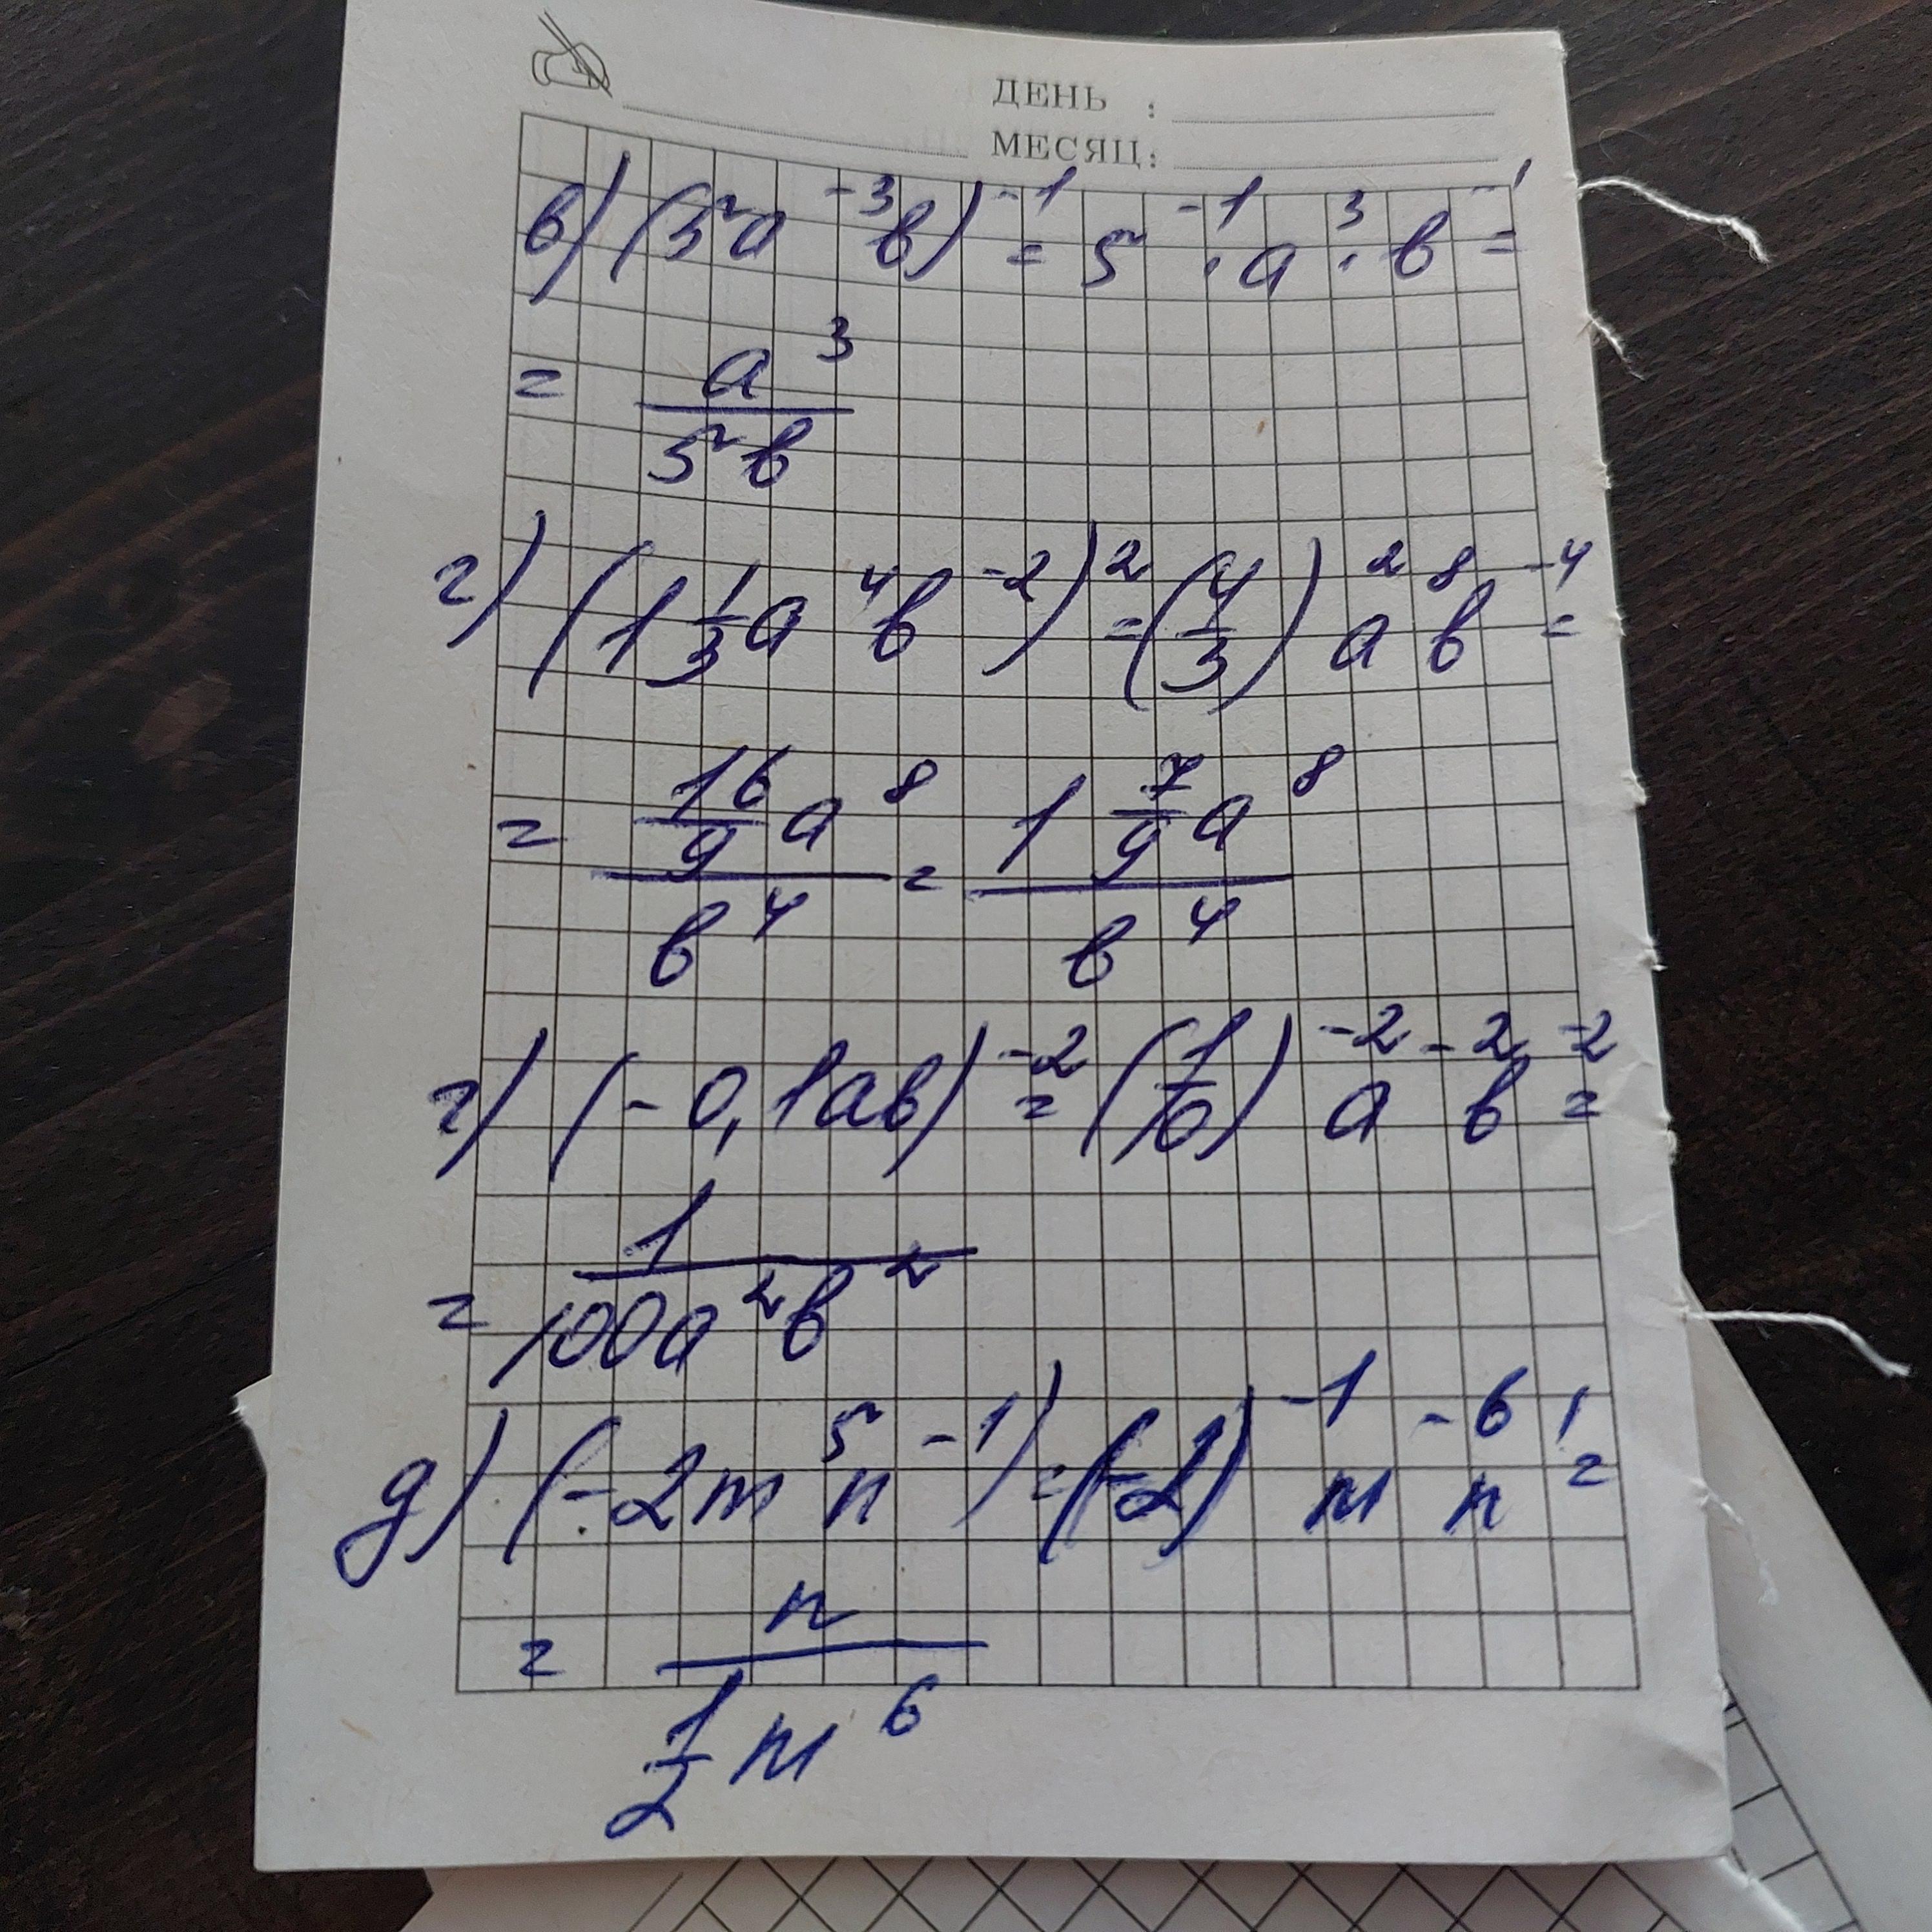 ДЕНЬ :
МЕСЯЦ:
в) (5a⁻³b)⁻¹ = 5⁻¹ · a³ · b⁻¹ =
= a³/(5b)
г) (1 1/3 a⁴b⁻²)² = (4/3)² a⁸ b⁻⁴ =
= (16/9 a⁸)/b⁴ = (1 7/9 a⁸)/b⁴
г) (-0,1ab)⁻² = (1/10)⁻² a⁻² b⁻² =
= 1/(100a²b²)
д) (-2m⁵n⁻¹) = (-2)⁻¹ m⁻⁶ n¹ =
= n/(1/2 m⁶)